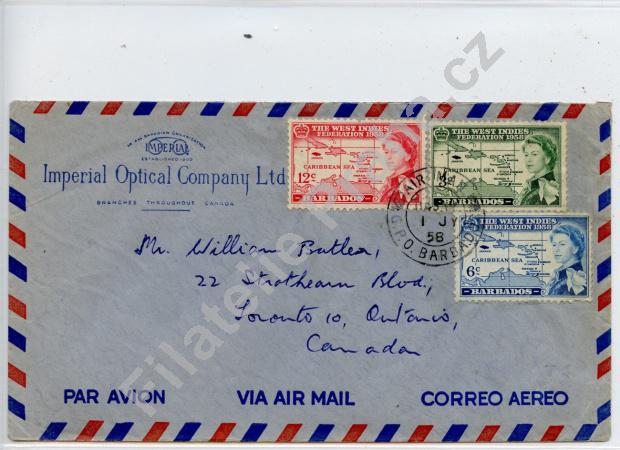 IMPERIAL
Imperial Optical Company Ltd
BRANCHES THROUGHOUT CANADA
THE WEST INDIES
FEDERATION 1958
CARIBBEAN SEA
12c
BARBADOS
THE WEST INDIES
FEDERATION 1958
CARIBBEAN SEA
3c
BARBADOS
THE WEST INDIES
FEDERATION 1958
CARIBBEAN SEA
6c
BARBADOS
AIR MAIL
1 JY
58
G.P.O. BARBADOS
Mr. William Butler,
22 Strathearn Blvd.,
Toronto 10, Ontario,
Canada
PAR AVION
VIA AIR MAIL
CORREO AEREO